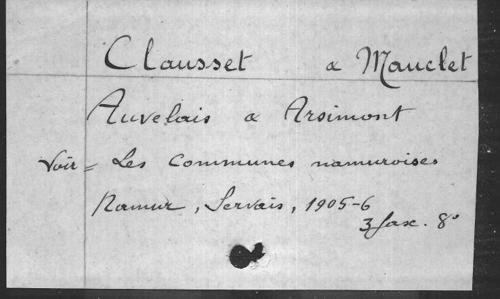 Clausset & Mauclet
Auvelais & Arsimont
Voir = Les Communes namuroises
Namur, Servais, 1905-6
3 fasc. 8°